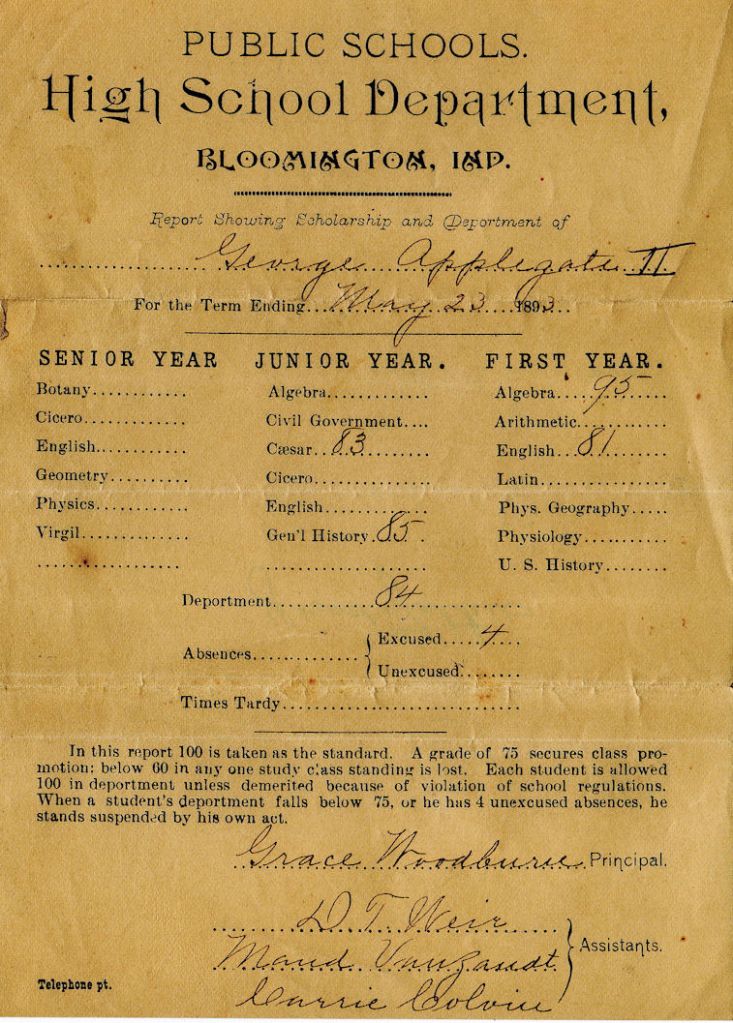 PUBLIC SCHOOLS.
High School Department,
BLOOMINGTON, IND.
Report Showing Scholarship and Deportment of
George Applegate II
For the Term Ending...May 23...1893..
SENIOR YEAR JUNIOR YEAR. FIRST YEAR.
Botany............ Algebra............. Algebra...95......
Cicero............. Civil Government.... Arithmetic............
English............ Cæsar..83........ English...81........
Geometry.......... Cicero.............. Latin................
Physics............ English............. Phys. Geography.....
Virgil.............. Gen'l History.85.. Physiology...........
U. S. History........
Deportment..............84..............
Absences............. { Excused.....4....
Unexcused........
Times Tardy..............................
In this report 100 is taken as the standard. A grade of 75 secures class pro-
motion; below 60 in any one study class standing is lost. Each student is allowed
100 in department unless demerited because of violation of school regulations.
When a student's department falls below 75, or he has 4 unexcused absences, he
stands suspended by his own act.
Grace Woodburn Principal.
D T Weir
Maud Vanzandt } Assistants.
Carrie Colvin
Telephone pt.